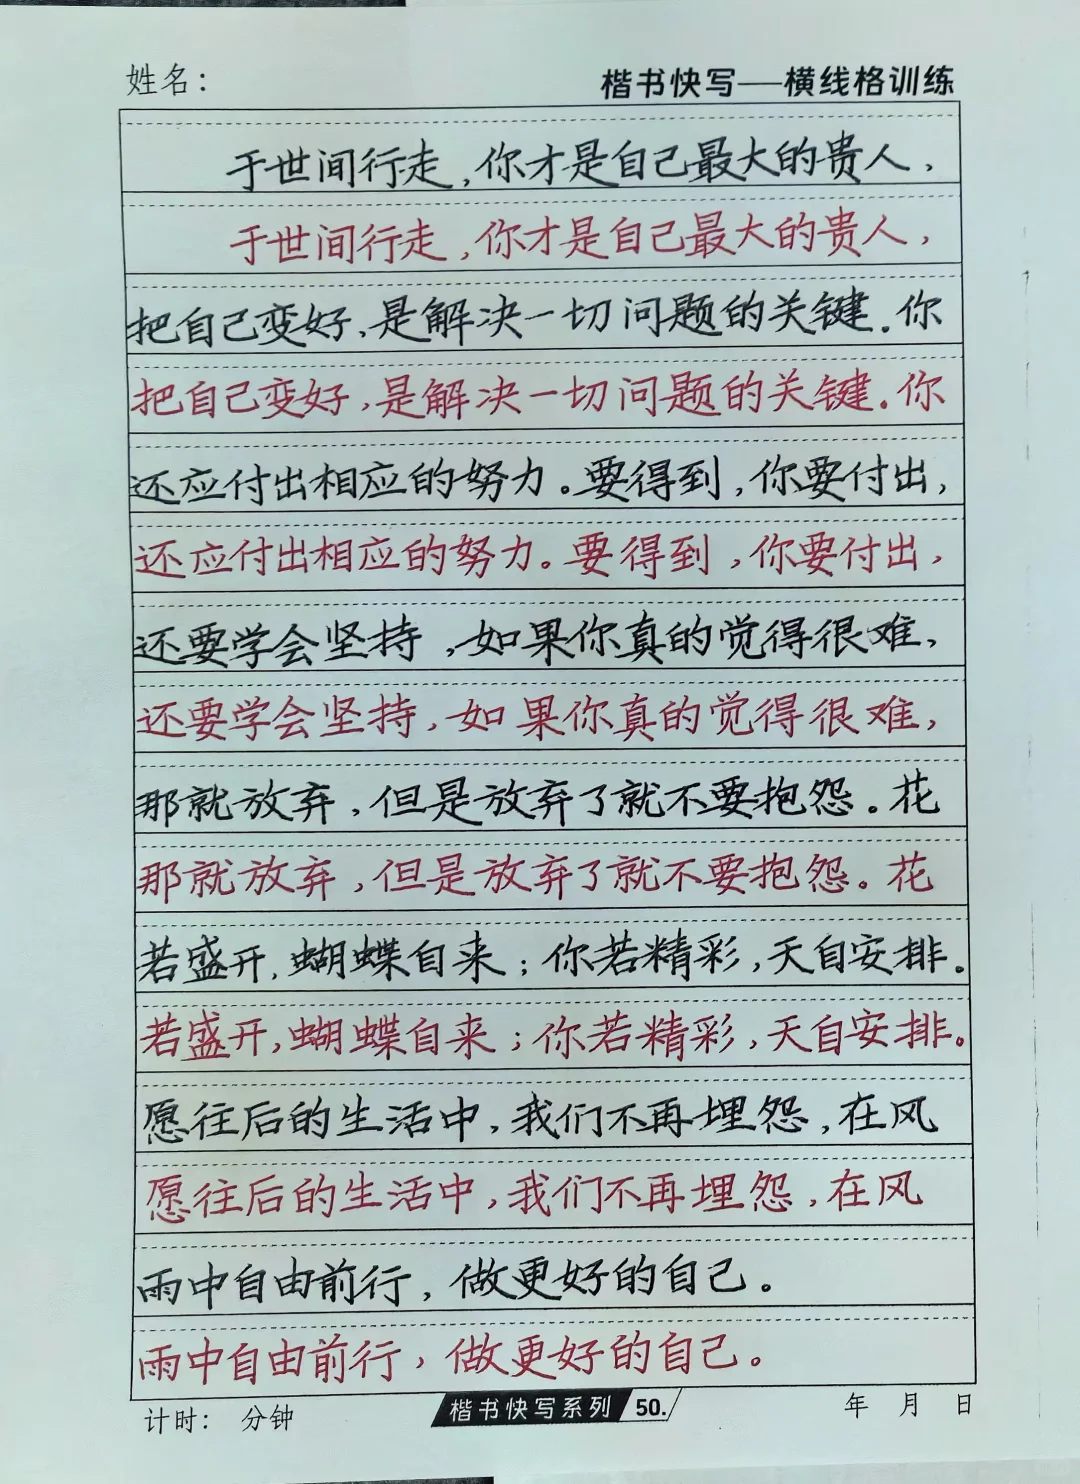 姓名：
楷书快写——横线格训练
于世间行走,你才是自己最大的贵人,
于世间行走,你才是自己最大的贵人,
把自己变好,是解决一切问题的关键.你
把自己变好,是解决一切问题的关键.你
还应付出相应的努力。要得到,你要付出,
还应付出相应的努力。要得到,你要付出,
还要学会坚持,如果你真的觉得很难,
还要学会坚持,如果你真的觉得很难,
那就放弃,但是放弃了就不要抱怨。花
那就放弃,但是放弃了就不要抱怨。花
若盛开,蝴蝶自来;你若精彩,天自安排。
若盛开,蝴蝶自来;你若精彩,天自安排。
愿往后的生活中,我们不再埋怨,在风
愿往后的生活中,我们不再埋怨,在风
雨中自由前行,做更好的自己。
雨中自由前行,做更好的自己。
计时： 分钟
楷书快写系列 50.
年 月 日